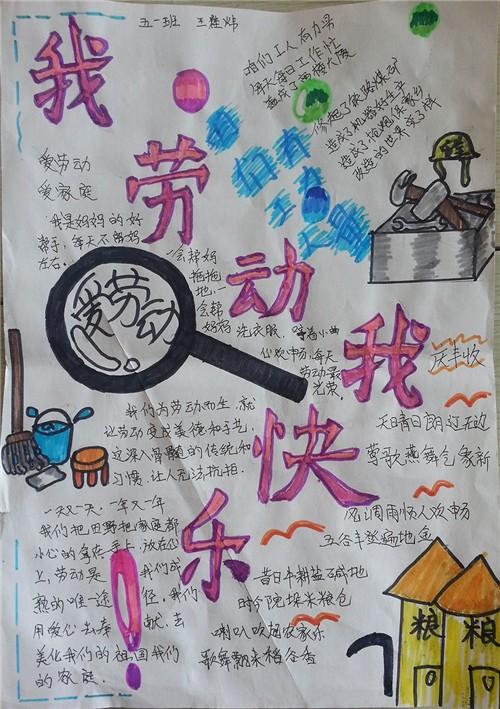 五一班 王
我劳动我快乐
咱们工人有力量
每天每日工作忙
盖成了高楼大厦
修起了铁路煤矿
改造的世界变了样
爱劳动
爱家庭
我是妈妈的好
帮手，每天不离妈
左右。
一会帮妈
拖拖
地，一
会帮
妈妈 洗衣服，哼着小曲
心欢畅，每天
劳动最
光荣。
爱劳动
庆丰收
天晴日朗过无边
莺歌燕舞气象新
风调雨顺人欢畅
五谷丰登遍地金
昔日牛耕盐碱地
喇叭欢
歌舞飘来稻谷香
我们为劳动而生，就
让劳动变成美德和手艺，
这深入骨髓的传统和
习惯，让人无法抗拒。
一天又一天，一年又一年
我们把田野把家庭都
小心的拿在手上，放在心
上，劳动是 我们成
熟的唯一途 径，我们
用爱心去奉 献 去
美化我们的祖国我们
的家庭。
粮 粮